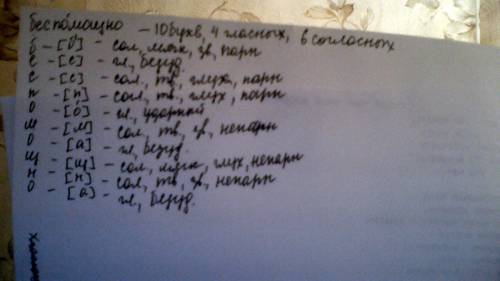 беспомощно – 10 букв, 4 гласных, 6 согласных
б – [б'] – согл, мягк, зв, парн
е – [е] – гл, безуд
с – [с] – согл, тв, глух, парн
п – [п] – согл, тв, глух, парн
о – [о́] – гл, ударный
м – [м] – согл, тв, зв, непарн
о – [а] – гл, безуд.
щ – [щ] – согл, мягк, глух, непарн
н – [н] – согл, тв, зв, непарн
о – [а] – гл, безуд.